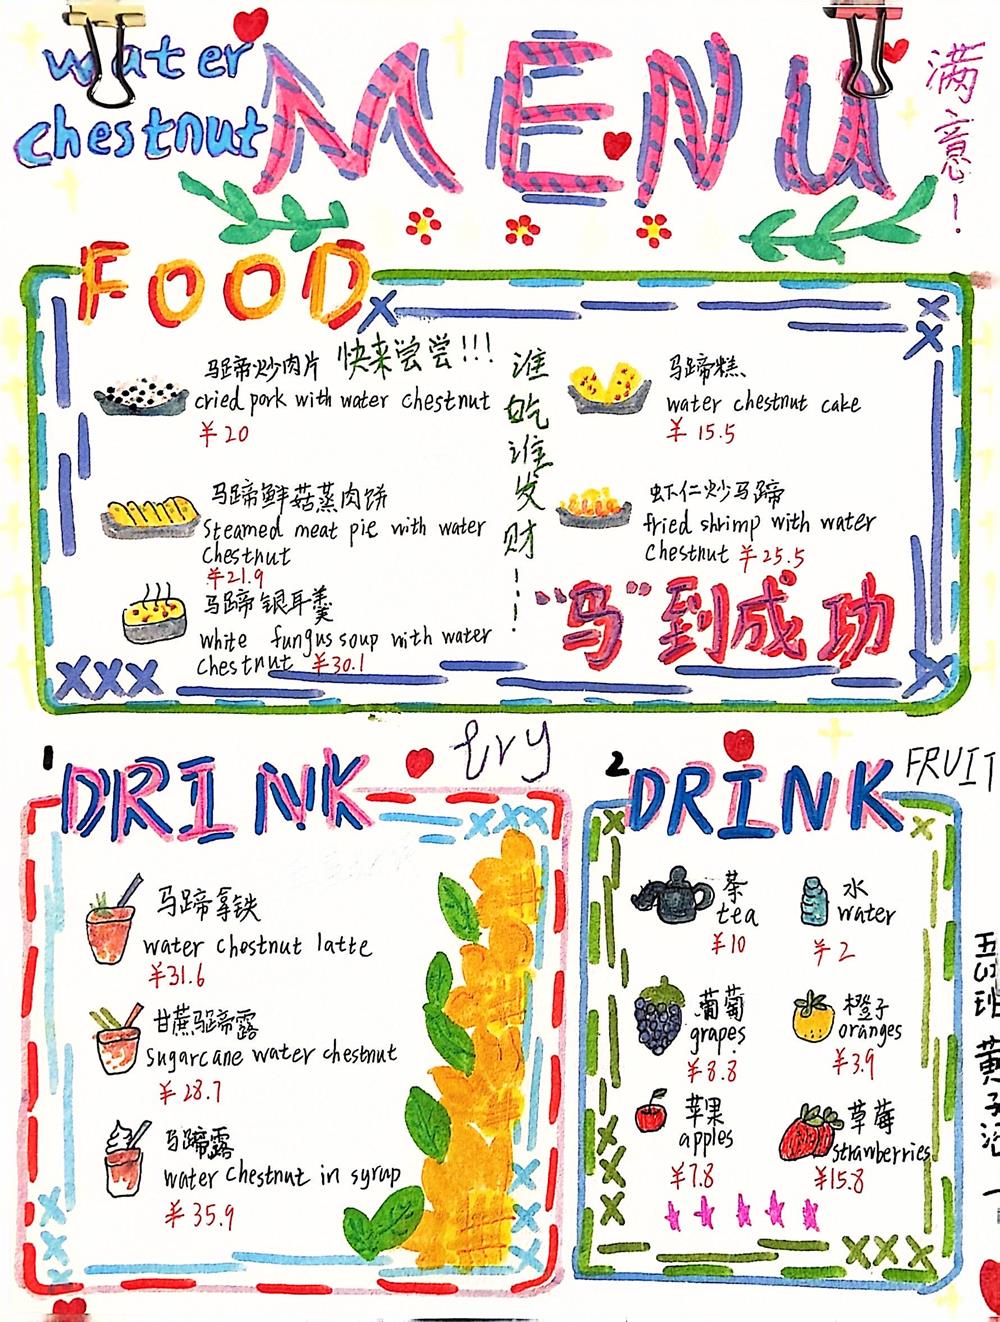 water
chestnut
MENU
满意!
FOOD
马蹄炒肉片 快来尝尝!!!
cried pork with water chestnut
¥20
马蹄鲜菇蒸肉饼
Steamed meat pie with water
chestnut
¥21.9
马蹄银耳羹
white fungus soup with water
chestnut ¥30.1
谁吃谁发财
马蹄糕、
water chestnut cake
¥15.5
虾仁炒马蹄
fried shrimp with water
chestnut ¥25.5
"马"到成功
1 DRINK
try
马蹄拿铁
water chestnut latte
¥31.6
甘蔗马蹄露
Sugarcane water chestnut
¥28.7
马蹄露
water chestnut in syrup
¥35.9
2 DRINK FRUIT
茶
tea
¥10
水
water
¥2
葡萄
grapes
¥8.8
橙子
oranges
¥3.9
苹果
apples
¥7.8
草莓
strawberries
¥15.8